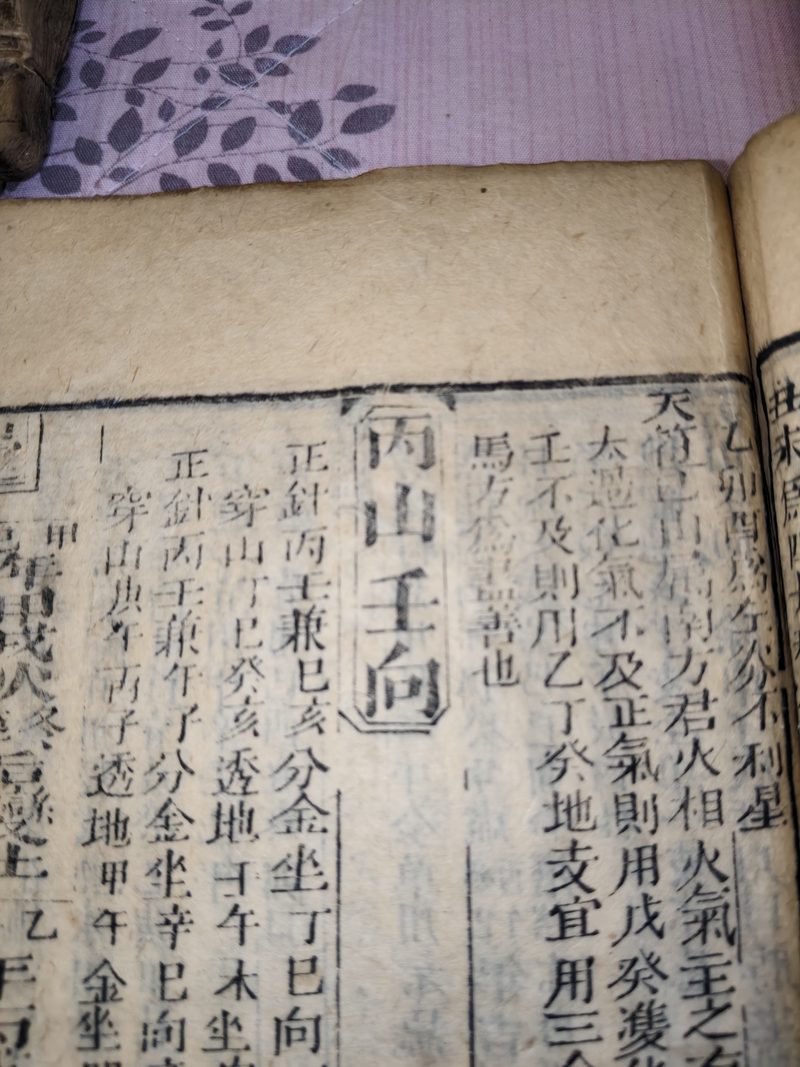 丑未爲
乙卯酉爲 分不利星
天 巳山屬南方君火相火氣主之
太過化氣不及正氣則用戊癸
壬不及則用乙丁癸地支宜用三
馬方爲盡善也
丙山壬向
正針丙壬兼巳亥分金坐丁巳向
穿山丁巳癸亥透地 午木坐
正針丙壬兼午子分金坐辛巳向
穿山庚午丙子透地甲午金坐
甲
年甲戌火
乙
年